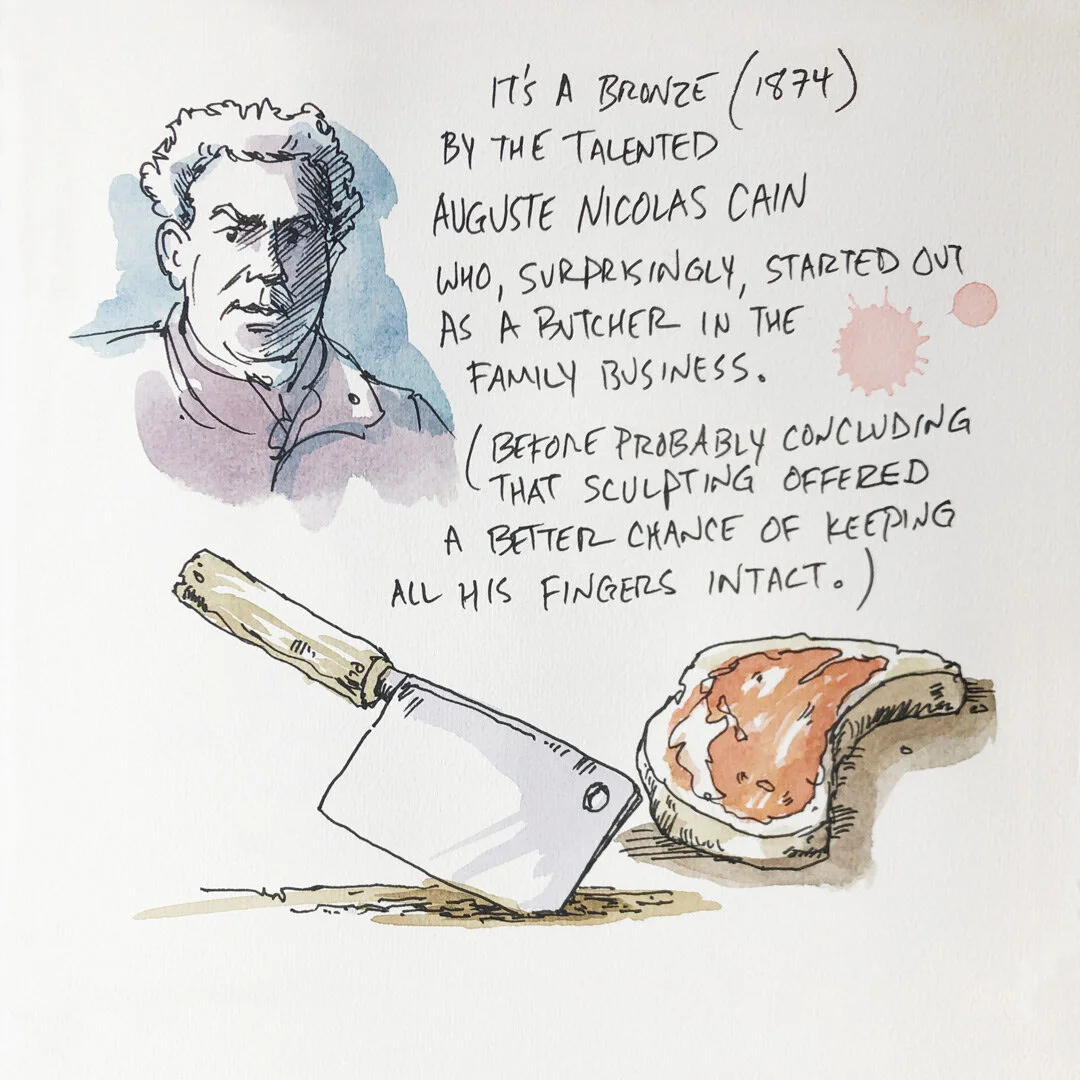 IT'S A BRONZE (1874)
BY THE TALENTED
AUGUSTE NICOLAS CAIN
WHO, SURPRISINGLY, STARTED OUT
AS A BUTCHER IN THE
FAMILY BUSINESS.
(BEFORE PROBABLY CONCLUDING
THAT SCULPTING OFFERED
A BETTER CHANCE OF KEEPING
ALL HIS FINGERS INTACT.)